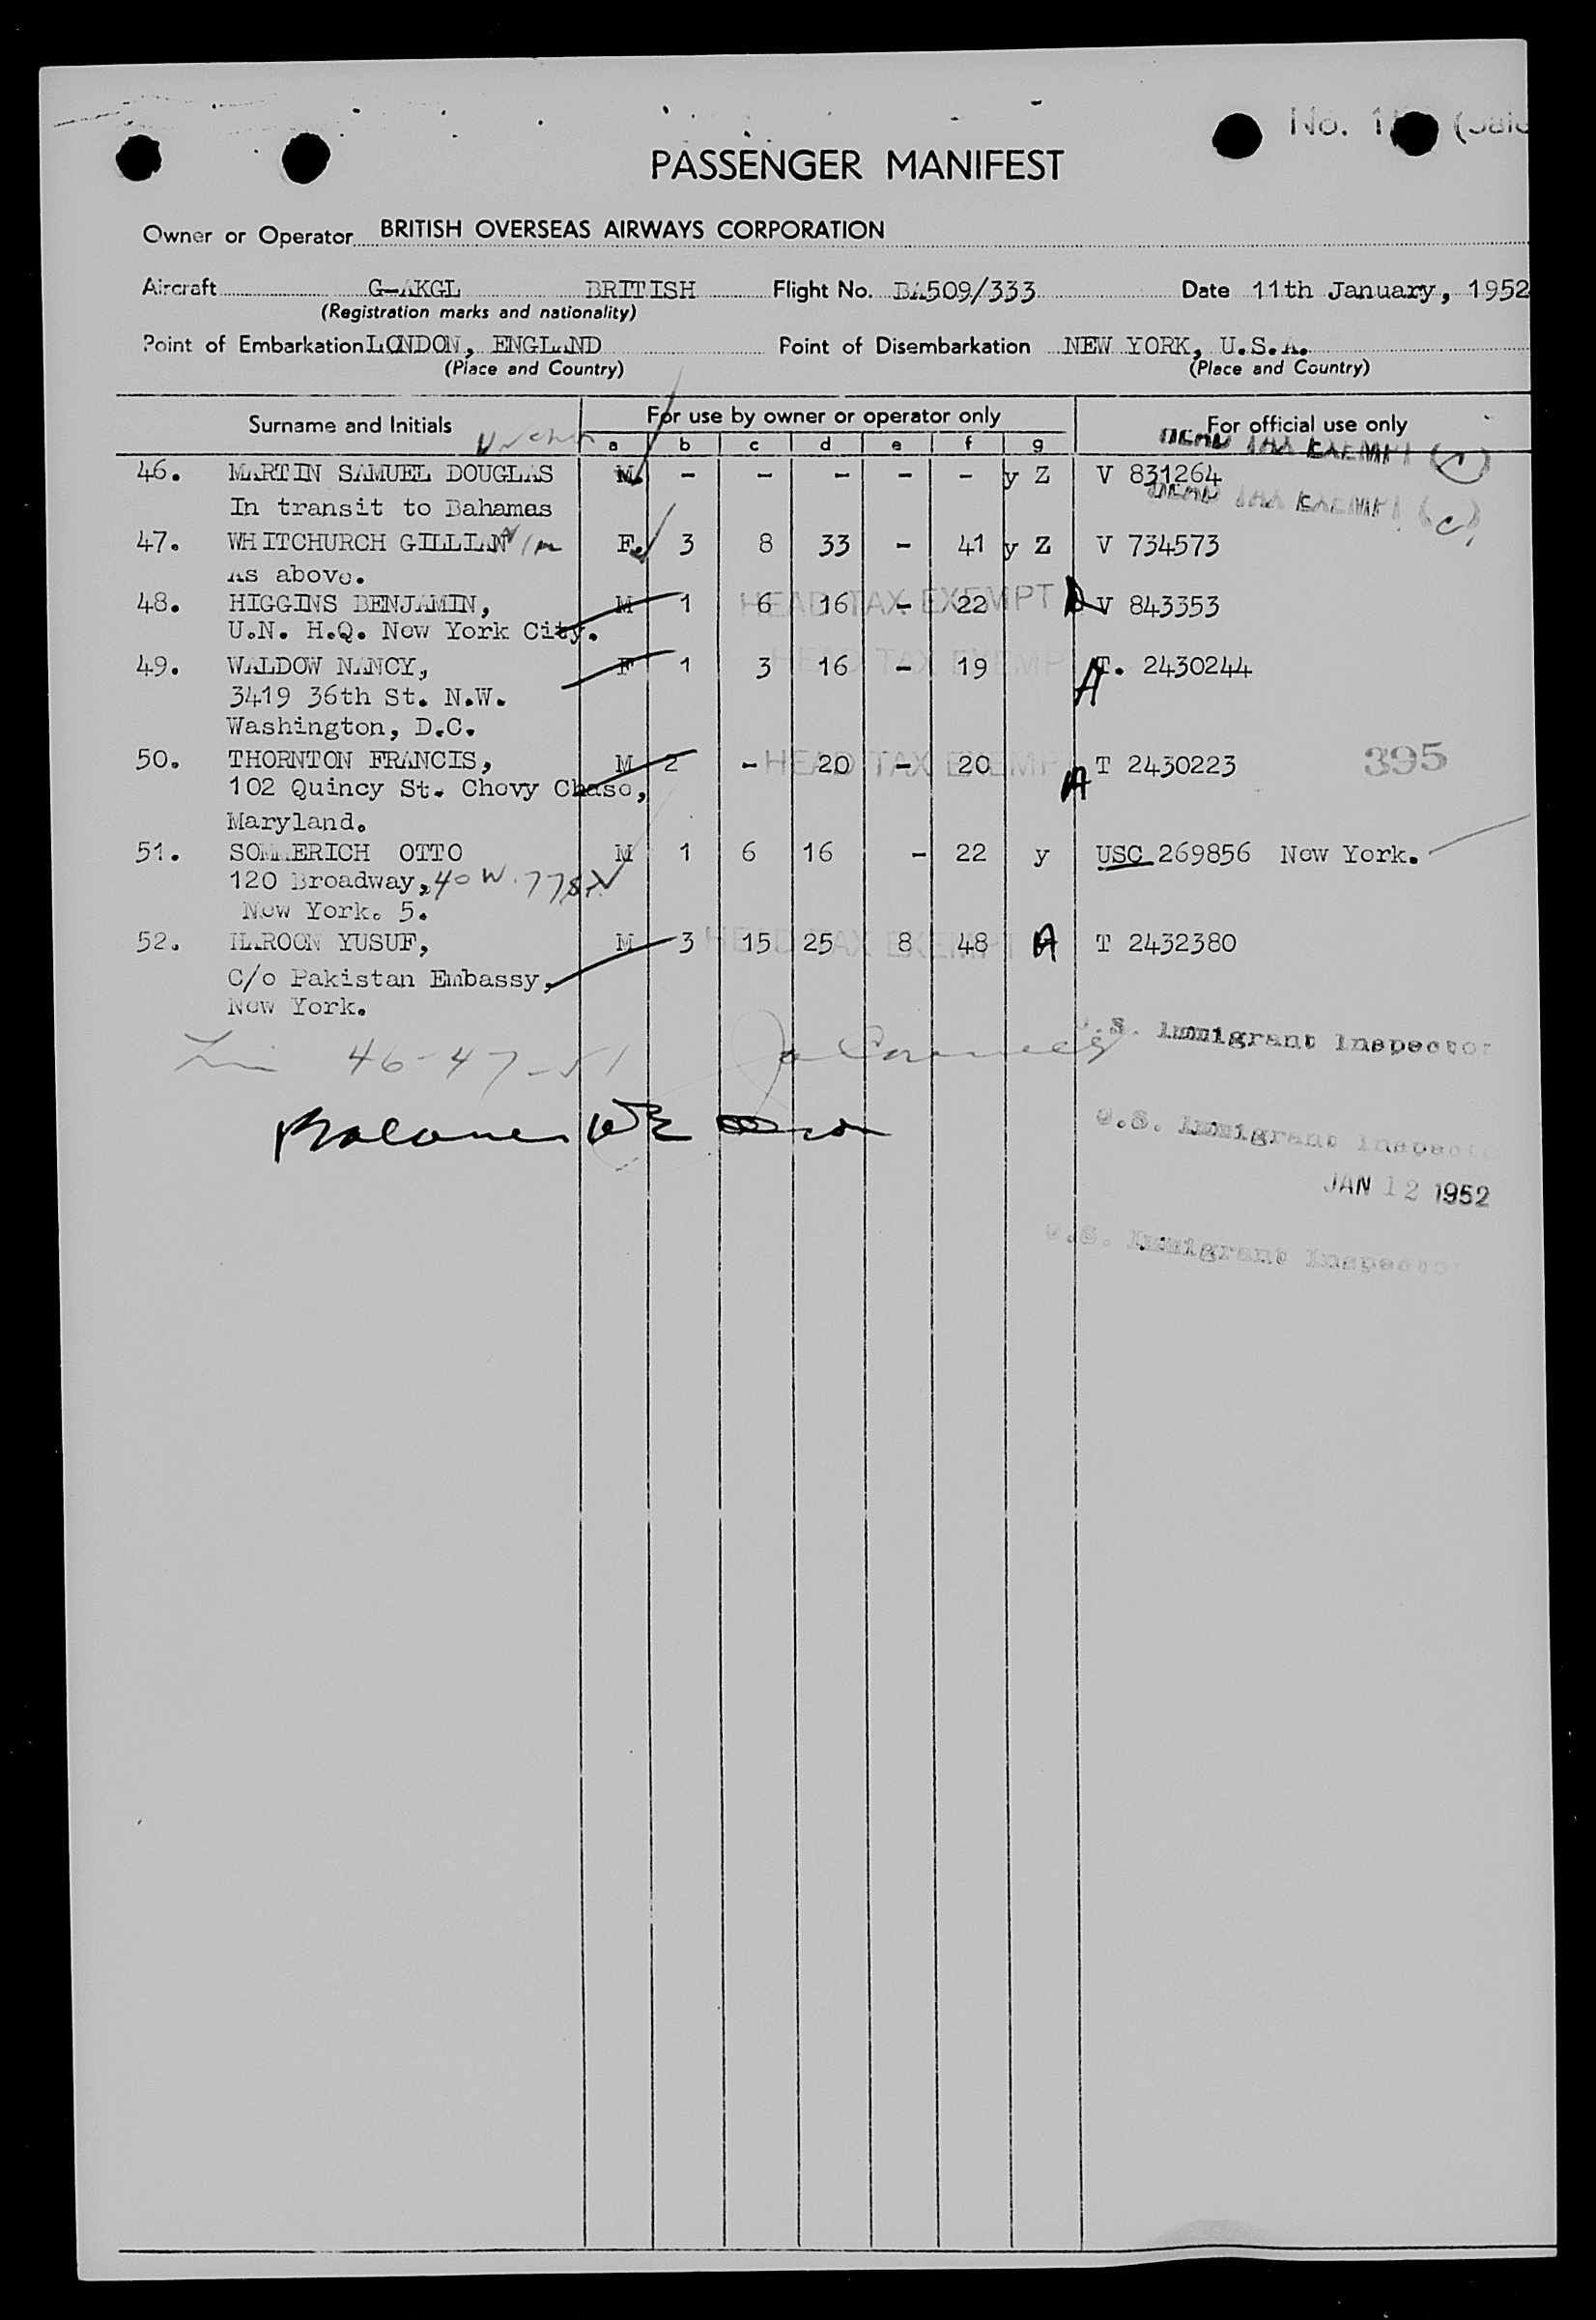 No. 1
PASSENGER MANIFEST
Owner or Operator BRITISH OVERSEAS AIRWAYS CORPORATION
Aircraft G-AKGL BRITISH Flight No. BA509/333 Date 11th January, 1952
(Registration marks and nationality)
Point of Embarkation LONDON, ENGLAND Point of Disembarkation NEW YORK, U.S.A.
(Place and Country) (Place and Country)
Surname and Initials For use by owner or operator only For official use only
a b c d e f g
HEAD TAX EXEMPT
46. MARTIN SAMUEL DOUGLAS M. - - - - - y Z V 831264
HEAD TAX EXEMPT (C)
In transit to Bahamas
47. WHITCHURCH GILLIAN F. 3 8 33 - 41 y Z V 734573
As above.
48. HIGGINS BENJAMIN, M 1 6 16 - 22 V 843353
HEAD TAX EXEMPT
U.N. H.Q. New York City.
49. WALDOW NANCY, F 1 3 16 - 19 A T. 2430244
HEAD TAX EXEMP
3419 36th St. N.W.
Washington, D.C.
50. THORNTON FRANCIS, M 2 - 20 - 20 A T 2430223 395
HEAD TAX EXEMP
102 Quincy St. Chevy Chase,
Maryland.
51. SOMMERICH OTTO M 1 6 16 - 22 y USC 269856 New York.
120 Broadway, 40 W. 77 St
New York. 5.
52. HAROON YUSUF, M 3 15 25 8 48 A T 2432380
HEAD TAX EXEMPT
C/o Pakistan Embassy,
New York.
U.S. Immigrant Inspector
46-47-51
Balance
U.S. Immigrant Inspector
JAN 12 1952
U.S. Immigrant Inspector